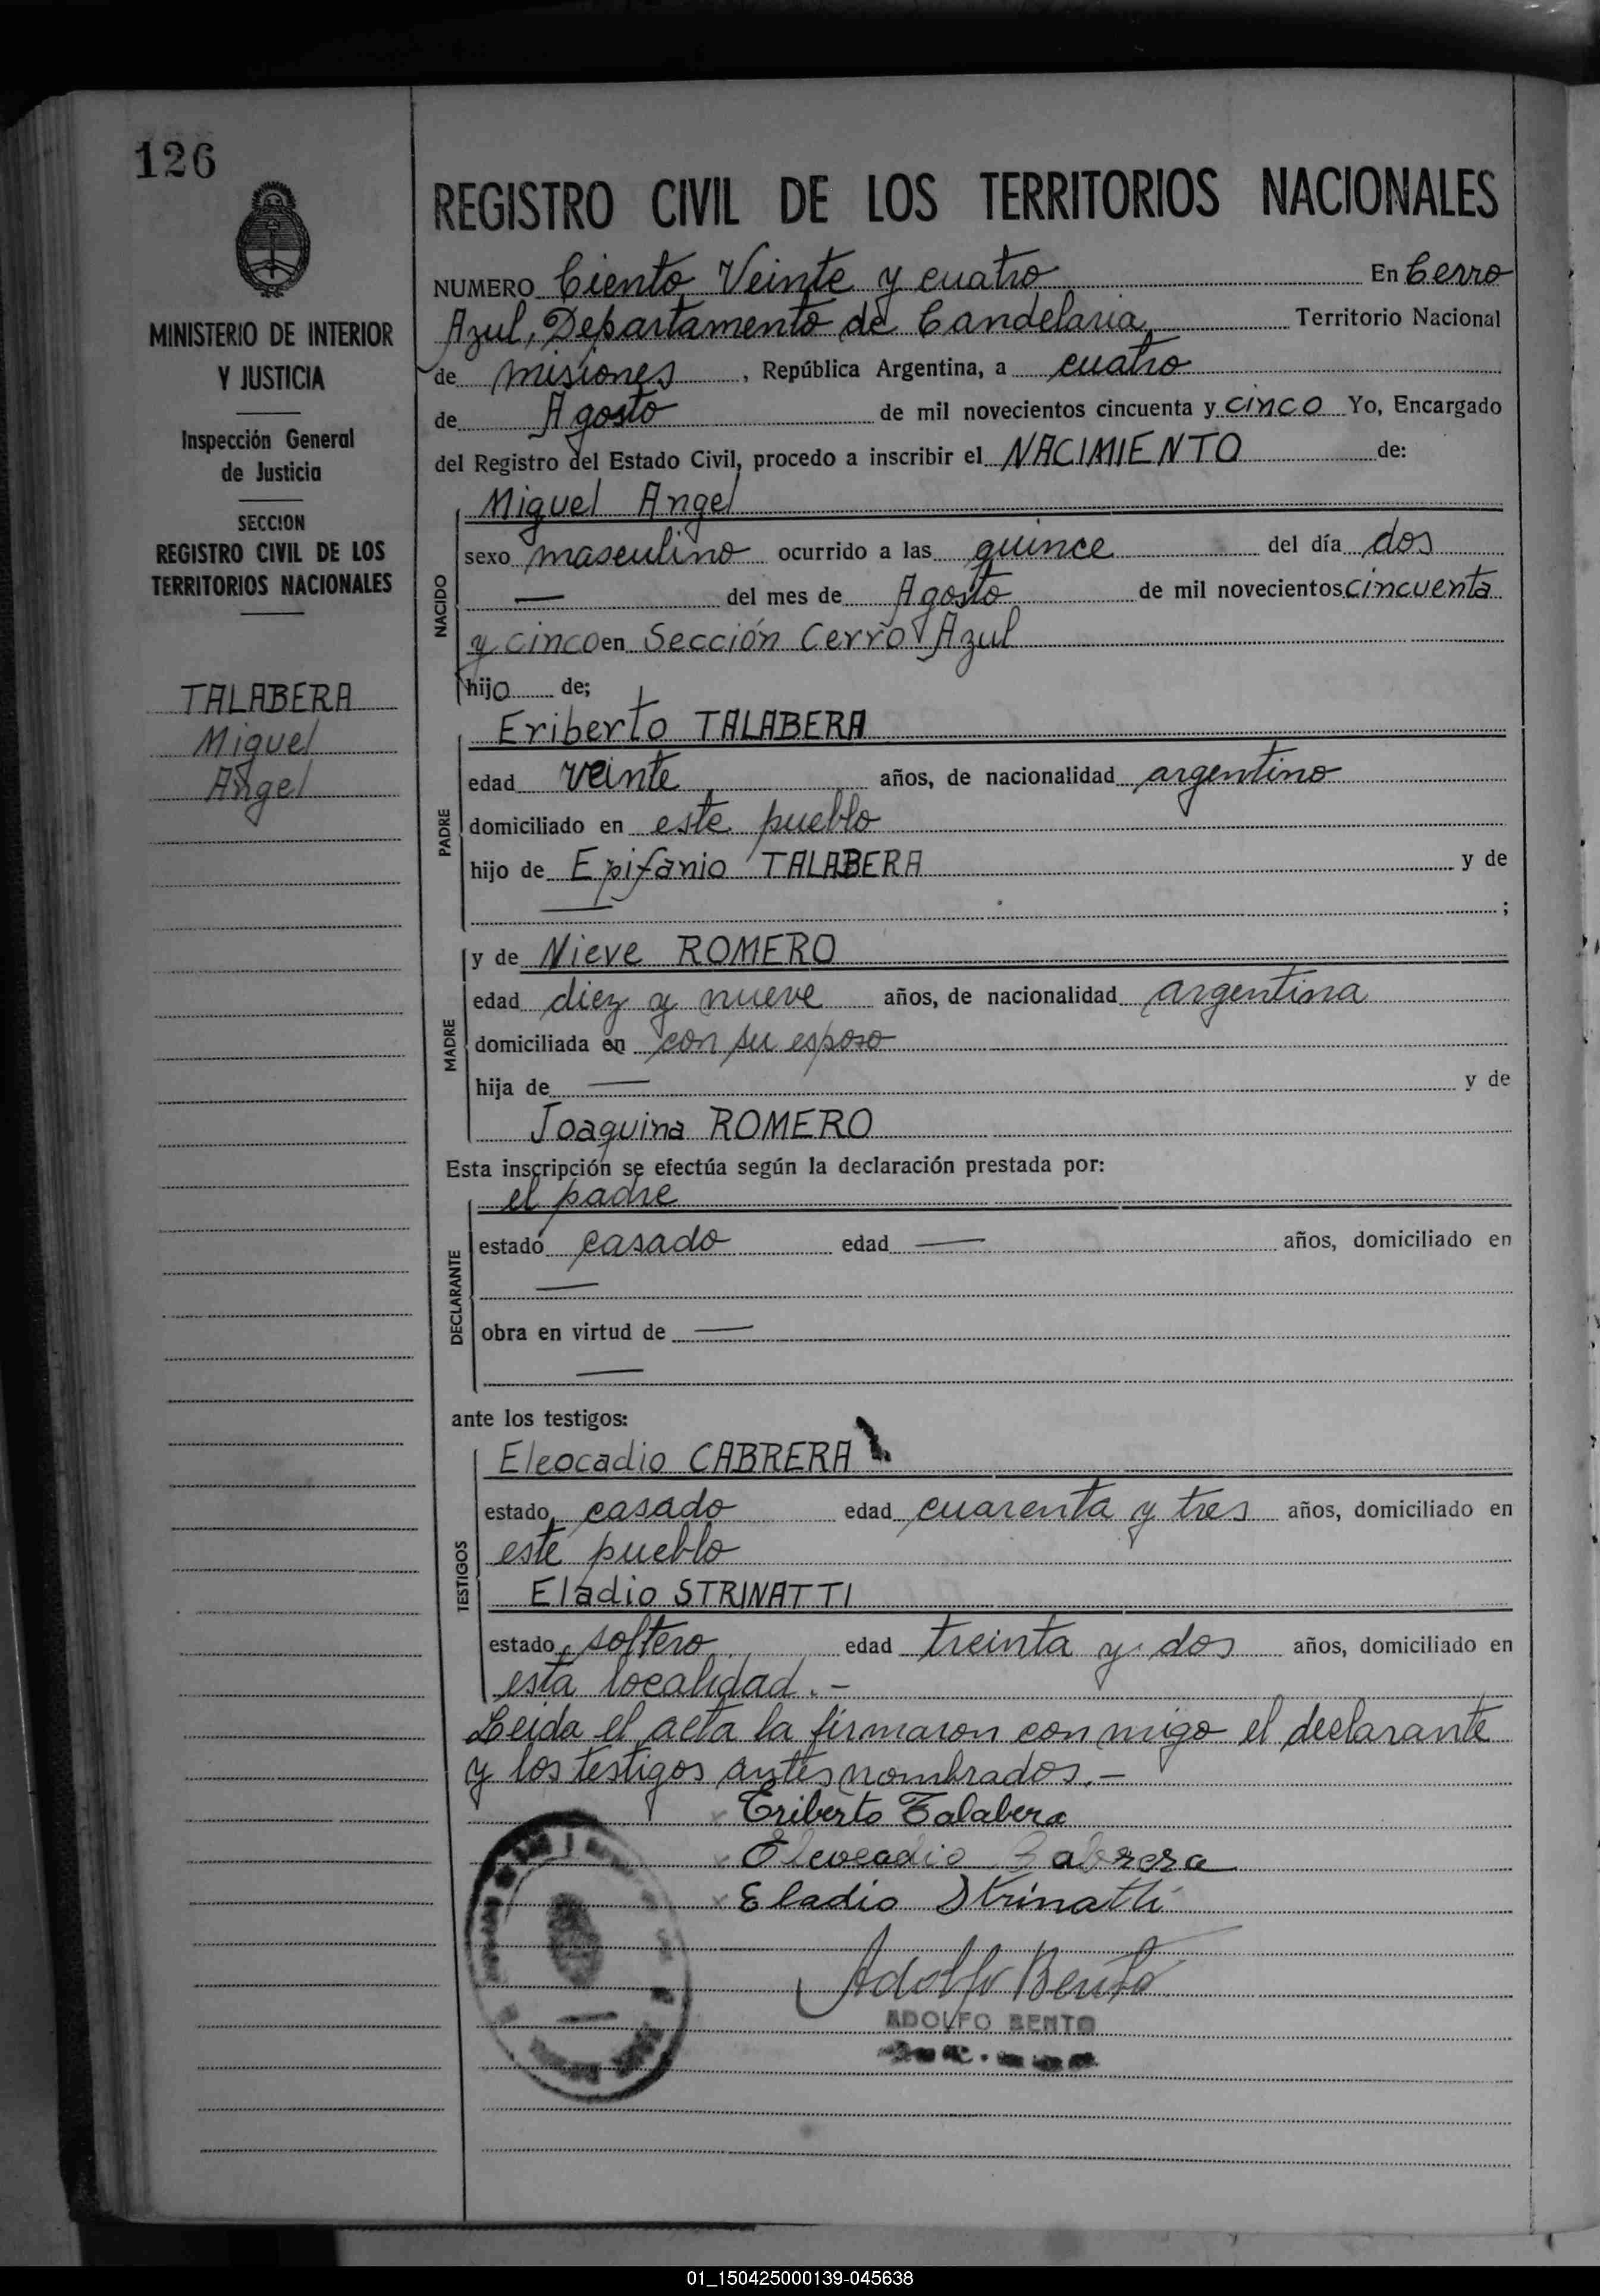 126
MINISTERIO DE INTERIOR
Y JUSTICIA
Inspección General
de Justicia
SECCION
REGISTRO CIVIL DE LOS
TERRITORIOS NACIONALES
TALABERA
Miguel
Angel
REGISTRO CIVIL DE LOS TERRITORIOS NACIONALES
NUMERO Ciento Veinte y cuatro En Cerro
Azul, Departamento de Candelaria, Territorio Nacional
de misiones, República Argentina, a cuatro
de Agosto de mil novecientos cincuenta y cinco Yo, Encargado
del Registro del Estado Civil, procedo a inscribir el NACIMIENTO de:
NACIDO
Miguel Angel
sexo masculino ocurrido a las quince del día dos
— del mes de Agosto de mil novecientos cincuenta
y cinco en Sección Cerro Azul
hijo de;
PADRE
Eriberto TALABERA
edad veinte años, de nacionalidad argentino
domiciliado en este pueblo
hijo de Epifanio TALABERA y de
— ;
MADRE
y de Nieve ROMERO
edad diez y nueve años, de nacionalidad argentina
domiciliada en con su esposo
hija de — y de
Joaquina ROMERO
Esta inscripción se efectúa según la declaración prestada por:
DECLARANTE
el padre
estado casado edad — años, domiciliado en
—
obra en virtud de —
—
ante los testigos:
TESTIGOS
Eleocadio CABRERA
estado casado edad cuarenta y tres años, domiciliado en
este pueblo
Eladio STRINATTI
estado soltero edad treinta y dos años, domiciliado en
esta localidad.-
Leida el acta la firmaron con migo el declarante
y los testigos antes nombrados.-
Eriberto Talabera
Eleocadio Cabrera
Eladio Strinatti
Adolfo Bento
ADOLFO BENTO
01_150425000139-045638